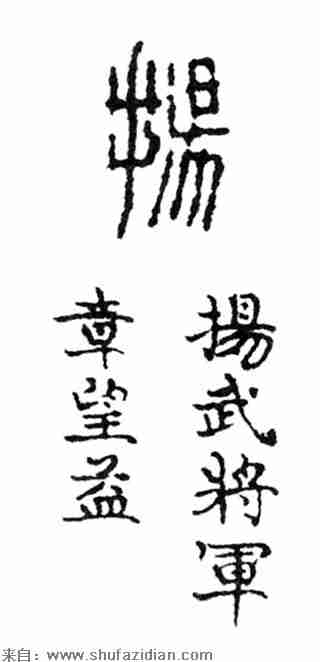 揚
揚武將軍
章望益
来自：www.shufazidian.com